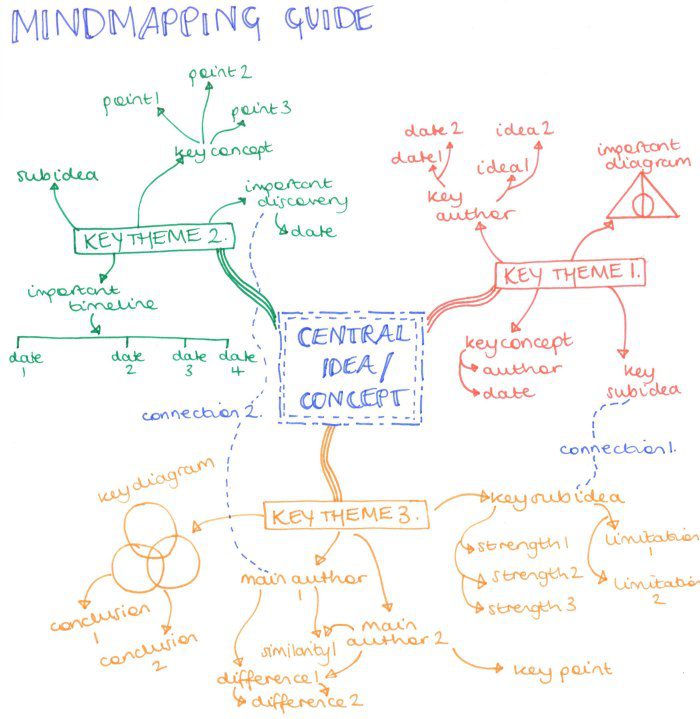 MINDMAPPING GUIDE
point 1
point 2
point 3
key concept
subidea
important
discovery
date
KEY THEME 2.
important
timeline
date
1
date
2
date
3
date
4
date 2
date 1
idea 2
idea 1
key
author
important
diagram
KEY THEME 1.
key concept
author
date
key
subidea
CENTRAL
IDEA/
CONCEPT
connection 2.
connection 1.
key diagram
KEY THEME 3.
conclusion
1
conclusion
2
main author
1
similarity 1
main
author 2
difference 1
difference 2
key point
key subidea
strength 1
strength 2
strength 3
limitation
1
limitation
2